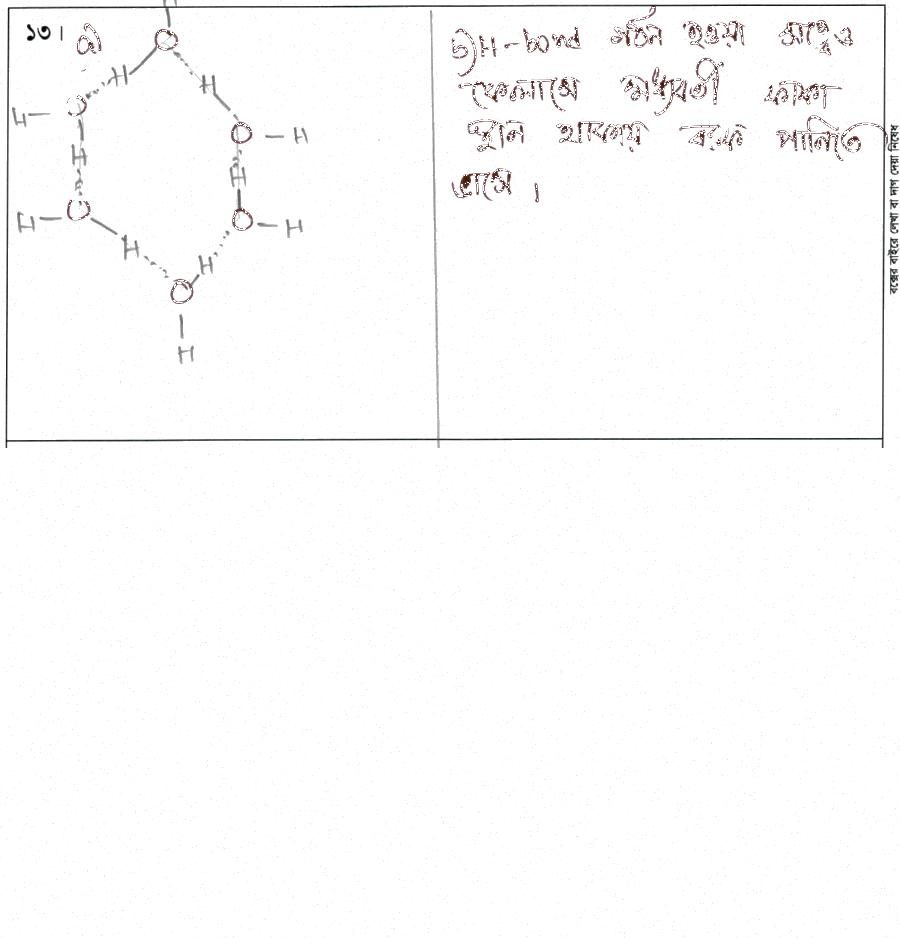 ১৩। a)
H
O
H H
H— O
O — H
H
H
H— O
O — H
H H
O
H
b) H-bond গঠন হওয়া সত্ত্বেও
কেলাসে মধ্যবর্তী ফাকা
স্থান থাকায় বরফ পানিতে
ভাসে।
বক্সের বাইরে লেখা বা দাগ দেয়া নিষেধ